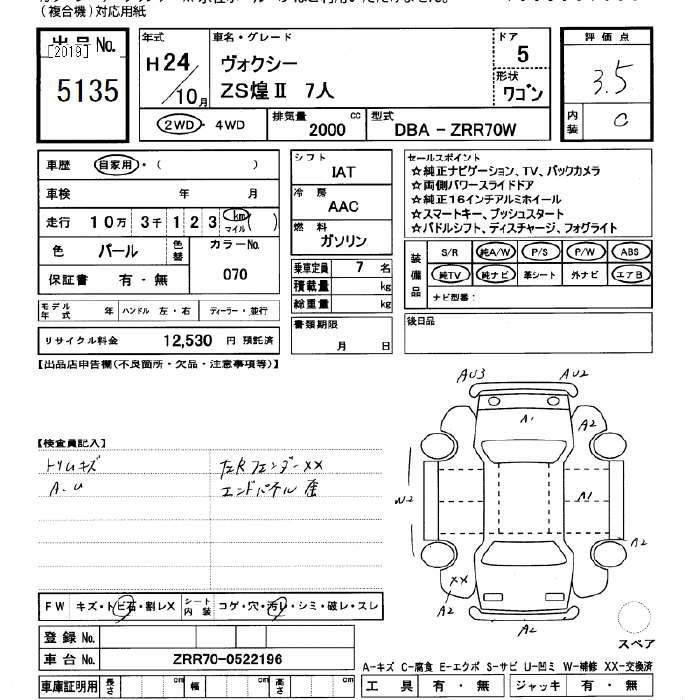 (複合機)対応用紙
出品No.
[2019]
5135
年式
H24/10月
車名・グレード
ヴォクシー
ZS煌Ⅱ 7人
ドア
5
形状
ワゴン
2WD・4WD
排気量 2000 cc
型式 DBA-ZRR70W
評価点
3.5
内装 C
車歴 自家用・( )
車検 年 月
走行 10万3千123 km マイル ( )
色 パール 色替
カラーNo. 070
保証書 有・無
モデル年式 年 ハンドル 左・右 ディーラー・並行
リサイクル料金 12,530 円 預託済
シフト
IAT
冷房
AAC
燃料
ガソリン
乗車定員 7 名
積載量 kg
総重量 kg
書類期限
月 日
セールスポイント
☆純正ナビゲーション、TV、バックカメラ
☆両側パワースライドドア
☆純正16インチアルミホイール
☆スマートキー、プッシュスタート
☆パドルシフト、ディスチャージ、フォグライト
装備品
S/R 純A/W P/S P/W ABS
純TV 純ナビ 革シート 外ナビ エアB
ナビ型番:
後日品
【出品店申告欄(不良箇所・欠品・注意事項等)】
【検査員記入】
トリムキズ
A-U
左Rフェンダー××
エンドパネル歪
AU3 AU2
A1 A2
W2 A1
A2
XX
A2 A2
スペア
FW キズ・トビ石・割レX シート内装 コゲ・穴・汚レ・シミ・破レ・スレ
登録No.
車台No. ZRR70-0522196
車庫証明用 長さ cm 幅 cm 高さ cm
A-キズ C-腐食 E-エクボ S-サビ U-凹ミ W-補修 XX-交換済
工具 有・無 ジャッキ 有・無